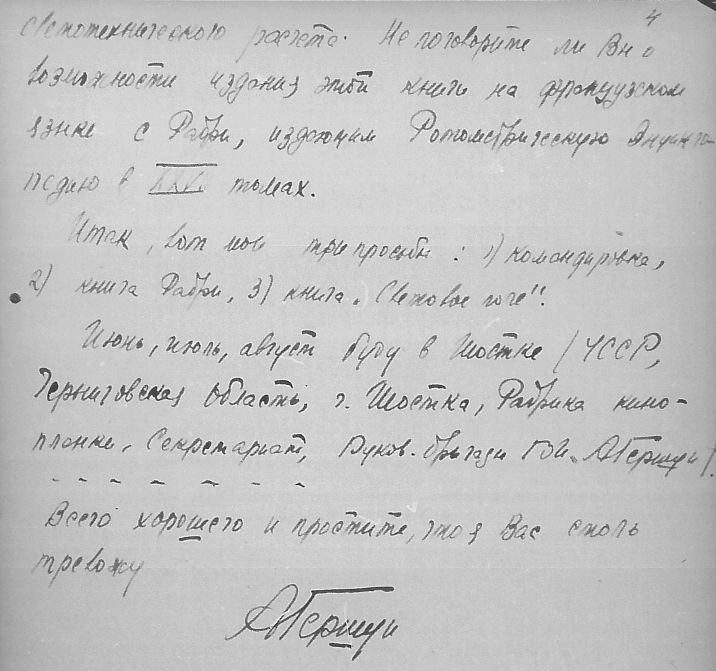 4
светотехнического расчета. Не поговорите ли Вы о
возможности издания этой книги на французском
языке с Фабри, издающим Фотометрическую Энцикло-
педию в XXV томах.
Итак, вот мои три просьбы: 1) командировка,
2) книга Фабри, 3) книга „Световое поле".
Июнь, июль, август буду в Шостке /УССР,
Черниговская область, г. Шостка, Фабрика кино-
пленки, Секретариат, Руков. бригады ГОИ. АГершун/.
Всего хорошего и простите, что я Вас столь
тревожу
АГершун